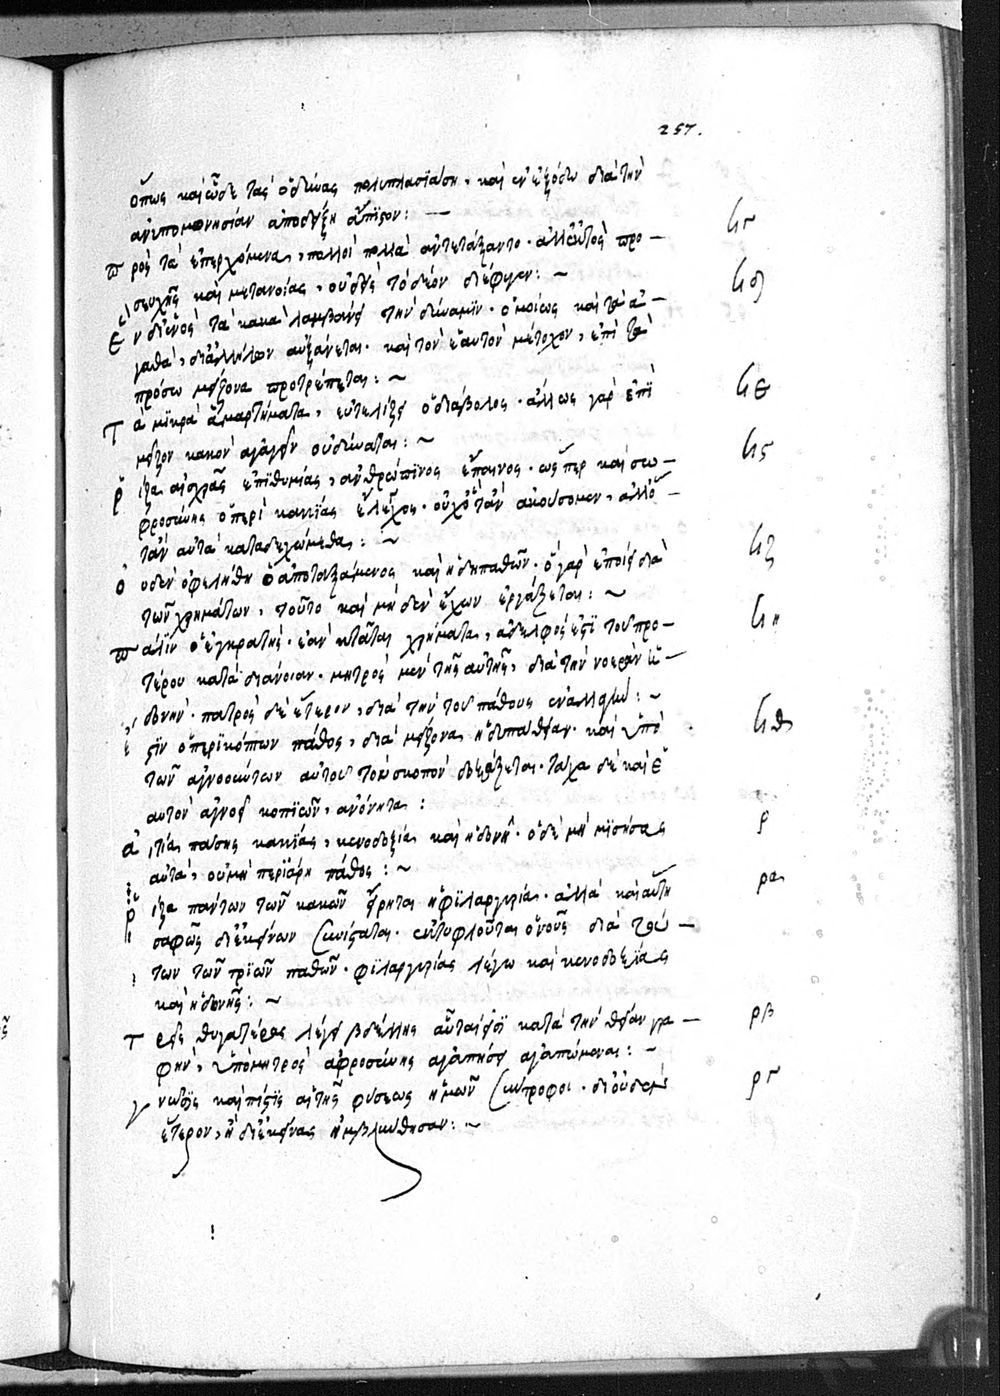 257.
ὅπως καὶ ὧδε τὰς ὀδύνας πολυπλασιάση, καὶ ἐν ἐξόδω διὰ τὴν
ἀνυπομονησίαν ἀποδείξη ἄπιστον: —
Ϟγ
πρὸς τὰ ἐπερχόμενα, πολλοὶ πολλὰ ἀντετάξαντο· ἀλλ' ἐκτὸς προ—
σευχῆς καὶ μετανοίας, οὐδεὶς τὸ δέον διέφυγεν: ~
Ϟδ
Ἓν δι' ἑνὸς τὰ κακὰ λαμβάνει τὴν δύναμϊν· ὁμοίως καὶ τὰ ἀ—
γαθὰ, δι' ἀλλήλων αὐξάνεται· καὶ τὸν ἑαυτὸν μέτοχον, ἐπὶ τὰ
πρόσω μείζονα προτρέπεται: ~
Ϟε
Τὰ μϊκρὰ ἁμαρτήματα, εὐτελίζει ὁ διάβολος· ἄλλως γὰρ ἐπῒ
μεῖζον κακὸν ἀγαγεῖν οὐ δύναται: ~
Ϟς
ῥίζα αἰσχρᾶς ἐπϊθυμίας, ἀνθρώπϊνος ἔπαινος· ὥσπερ καὶ σω—
φροσύνης ὁ περὶ κακϊας ἔλεγχος· οὐχ ὅταν ἀκούσομεν, ἀλλ' ὅ—
ταν αὐτὰ καταδεχώμεθα: ~
Ϟζ
οὐδὲν ὠφελήθη ὁ ἀποταξάμενος καὶ ἡδηπαθῶν· ὃ γὰρ ἐποίει διὰ
τῶν χρημάτων, τοῦτο καὶ μηδὲν ἔχων ἐργάζεται: ~
Ϟη
πάλϊν ὁ ἐγκρατὴς· ἐὰν κτᾶται χρήματα, ἀδελφός ἐστϊ τοῦ προ—
τέρου κατὰ διάνοιαν· μητρὸς μὲν τῆς αὐτῆς, διὰ τὴν νοερὰν ἡ—
δονήν· πατρὸς δὲ ἕτερον, διὰ τὴν τοῦ πάθους ἐναλλαγὴν: ~
Ϟθ
ἔστϊν ὁ περϊκόπτων πάθος, διὰ μείζονα ἡδυπάθειαν· καὶ ὑπὸ
τῶν ἀγνοούντων αὐτοῦ τὸν σκοπὸν δοξάζεται· τάχα δὲ καὶ ἑ
αυτὸν ἀγνοεῖ κοπϊῶν, ἀνόνητα:
ρ
αἰτία πάσης κακϊας, κενοδοξία καὶ ἡδονὴ· ὁ δὲ μὴ μϊσήσας
αὐτὰ, οὐ μὴ περϊάρη πάθος: ~
ρα
ῥίζα πάντων τῶν κακῶν εἴρηται ἡ φϊλαργυρία· ἀλλὰ καὶ αὕτη
σαφῶς δι' ἐκείνων συνίσταται· ἐκτυφλοῦται ὁ νοῦς διὰ τού—
των τῶν τρϊῶν παθῶν· φϊλαργυρίας λέγω καὶ κενοδοξϊας
καὶ ἡδονῆς: ~
ρβ
Τρεῖς θυγατέρας λέγει βδέλλης αὗται εἰσϊ κατὰ τὴν θείαν γρα—
φὴν, ὑπὸ μητρὸς ἀφροσύνης ἀγαπήσει ἀγαπώμεναι: ~
ργ
γνῶσϊς καὶ πίστϊς αἱ τῆς φύσεως ἡμῶν σύντροφοι· δι' οὐδὲν
ἕτερον, ἢ δι' ἐκείνας ἠμβλύνθησαν: ~